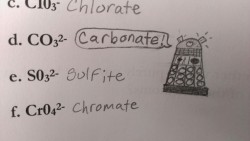 c. ClO₃⁻ Chlorate
d. CO₃²⁻ Carbonate!!
e. SO₃²⁻ Sulfite
f. CrO₄²⁻ Chromate